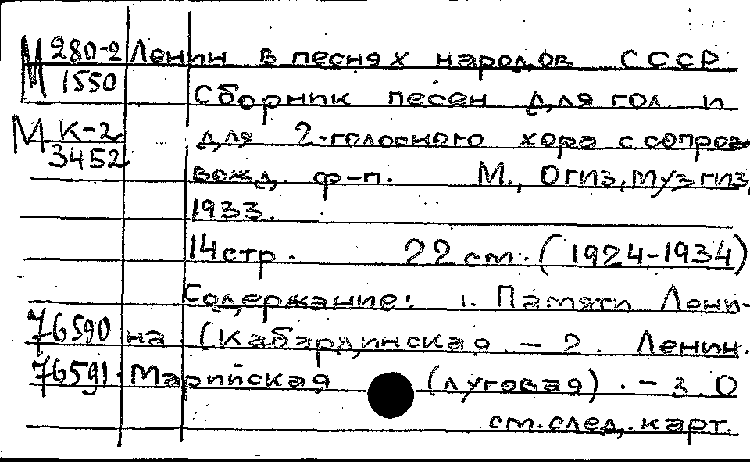 М 280-2 Ленин в песнях народов СССР
1550
Сборник песен для гол и
М К-2 для 2-голосного хора с сопров
3452
вожд. ф-п. М., Огиз, Музгиз,
1933.
14 стр. 22 см. (1924-1934)
Содержание: 1. Памяти Лени-
76590 на (Кабардинская. - 2. Ленин.
76591. Марийская (луговая). - 3. О
см. след. карт.